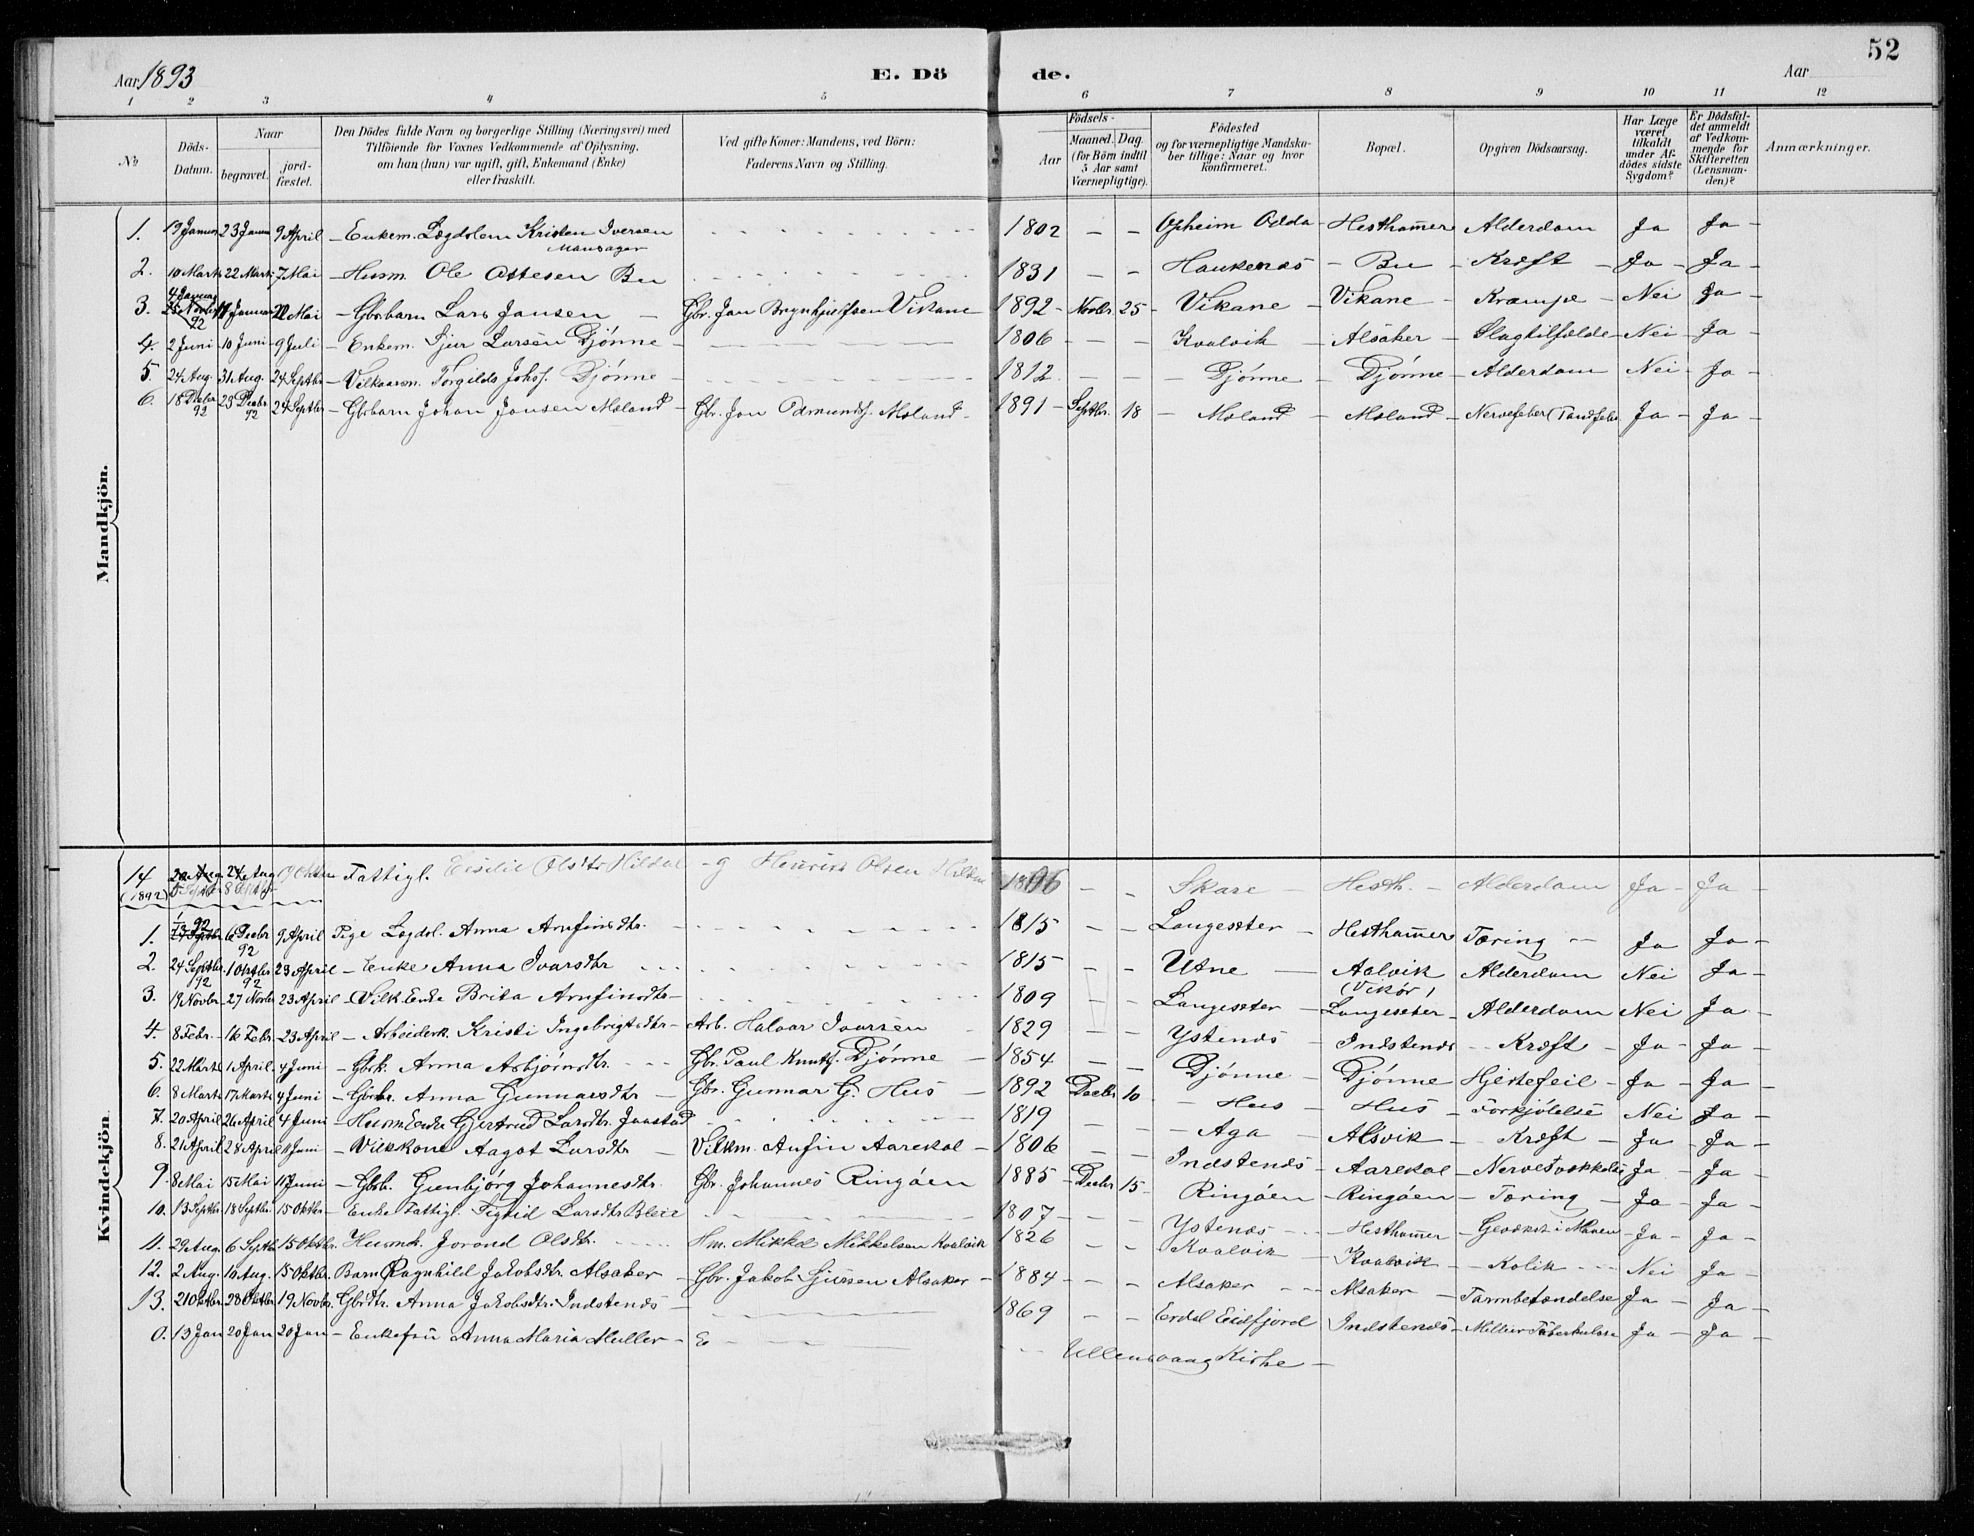 52
Aar 1893 E. Dö de. Aar
1 2 3 4 5 6 7 8 9 10 11 12
No Döds-Datum. Naar begravet. jord-fæstet. Den Dödes fulde Navn og borgerlige Stilling (Næringsvei) med Tilföiende for Voxnes Vedkommende af Oplysning, om han (hun) var ugift, gift, Enkemand (Enke) eller fraskilt. Ved gifte Koner: Mandens, ved Börn: Faderens Navn og Stilling. Födsels- Aar Maaned. Dag. (for Börn indtil 5 Aar samt Værnepligtige). Födested og for værnepligtige Mandskaber tillige: Naar og hvor konfirmeret. Bopæl. Opgiven Dödsaarsag. Har Læge været tilkaldt under Afdödes sidste Sygdom? Er Dödsfaldet anmeldt af Vedkommende for Skifteretten (Lensmanden)? Anmærkninger.
Mandkjön.
1. 19 Januar 23 Januar 9 April – Enkem. Lægdslem Kristen Iversen Mansager 1802 – – Opheim Odda – Hesthamer Alderdom Ja Ja –
2. 10 Marts 22 Marts 7 Mai – Husm. Ole Ottesen Bu 1831 – – Haukenæs – Bu – Kræft – Ja – Ja –
3. 4 Januar 11 Januar 22 Mai – Gbrbarn Lars Jansen – Gbr. Jan Brynhjulfsen Vikane 1892 – Novbr. 25 – Vikane – Vikane – Krampe – Nei Ja –
4. 2 Juni 10 Juni 9 Juli – Enkem. Sjur Larsen Djönne – 1806 – – – Kvalvik – Alsaker – Slagtilfælde – Nei – Ja –
5. 24 Aug. 31 Aug. 24 Septbr – Vilkaarsm. Torgilds Johs. Djönne – 1812 – – – Djönne – Djönne – Alderdom Nei – Ja –
6. 18 Decbr 92 23 Decbr 92 24 Septbr – Gbrbarn Johan Jansen Moland – Gbr. Jon Odmunds. Moland – 1891 – Septbr. 18 – Moland – Moland – Nervefeber (Tandfeber Ja – Ja –
Kvindekjön
14 (1892) 24 Aug Fattigl. Olsdtr Hildal – g Henrik Olsen Hildal 1806 – – Skare – Hesth. – Alderdom Ja – Ja –
1. 92 6 Decbr 92 9 April Pige Lægdsl. Anna Arnfinsdtr. 1815 – – Langesæter – Hesthamer Tæring – Ja Ja –
2. 24 Septbr. 92 1 Oktbr 92 23 April – Enke Anna Ivarsdtr 1815 – – Utne – Aalvik (Vikør) Alderdom Nei Ja –
3. 19 Novbr 27 Novbr 23 April – Vilk Enke Brita Arnfinsdtr – 1809 – – Langesæter – Langesæter – Alderdom Nei Ja –
4. 8 Febr. – 16 Febr. – 23 April – Arbeiderk. Kristi Ingebrigtsdtr – Arb. Halvar Ivarsen 1829 – Ystenæs – Indstenæs – Kræft – Ja – Ja –
5. 22 Marts 1 April 4 Juni – Gbrk. Anna Asbjörnsdtr. Gbr. Paul Knuts. Djönne – 1854 – – Djönne – Djönne Hjertefeil – Ja – Ja –
6. 8 Marts 17 Marts 4 Juni – Gbrbr. Anna Gunnarsdtr – Gbr. Gunnar G. Hus – 1892 Decbr 10 – Hus – Hus – Forkjölelse Nei Ja –
7. 20 April 26 April 4 Juni – Husm Enke Gjertrud Larsdtr. Jaastad 1819 – – Aga – Alsvik – Kræft – Ja – Ja –
8. 21 April 28 April 11 Juni – Vilkkone Aagot Larsdtr – Vilkm. Anfin Aarekol – 1806 – – Indstenæs – Aarekol – Ja – Ja –
9. 8 Mai 15 Mai 11 Juni – Gbrb. Gunbjörg Johannesdtr. Gbr. Johannes Ringöen 1885 – Decbr 15 – Ringöen – Ringöen – Tæring – Ja – Ja –
10. 13 Septbr 18 Septbr. 15 Oktbr – Enke Fattigl. Sigrid Larsdtr Bleie 1807 – – – Ystenæs – Hesthamer – Ja – Ja –
11. 29 Aug. 6 Septb 15 Oktbr. Husmk. Jorand Olsdtr. Hm. Mikkel Mikkelsen Kvalvik 1826 – – Kvalvik – Kvalvik – Kolik – Nei Ja –
12. 2 Aug. 10 Aug. 15 Oktbr. Barn Ragnhild Jakobsdtr. Alsaker – Gbr. Jakob Sjursen Alsaker – 1884 – – – Alsaker – Alsaker – Tarmbetændelse Ja – Ja –
13. 21 Oktbr 28 Oktbr. 19 Novbr. Gbrdtr. Anna Jakobsdtr. Indstenæs – 1869 – – Erdal Eidfjord Indstenæs – Ja – Ja –
0. 13 Jan 20 Jan 20 Jan – Enkefru Anna Maria Muller – E – Ullensvang Kirke –